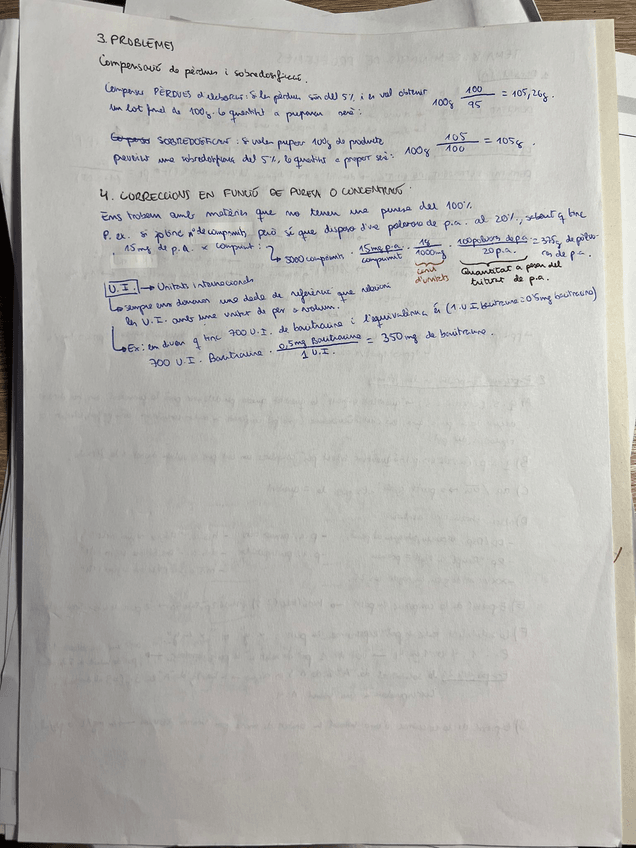 3. PROBLEMES
Compensació de pèrdues i sobredosificació.
Compensar PÈRDUES d'elaboració: Si les pèrdues són del 5% i es vol obtenir
un lot final de 100g. la quantitat a preparar serà: 100g 100/95 = 105,26g.
SOBREDOSIFICACIÓ: si volem preparar 100g de producte
preveient una sobredosificació del 5%, la quantitat a preparar serà: 100g 105/100 = 105g.
4. CORRECCIONS EN FUNCIÓ DE PURESA O CONCENTRACIÓ.
Ens trobem amb matèries que no tenen una puresa del 100%.
P. ex. si jo tinc nº de comprimits però sé que disposo d'una pólvores de p.a. al 20%, sabent q tinc
15mg de p.a. x comprimit: → 5000 comprimits · 15mg p.a./comprimit · 1g/1000mg · 100 pólvores de p.a./20 p.a. = 375g de pólvo-
res de p.a.
canvi d'unitats
Quantitat a pesar del triturat de p.a.
U.I. → Unitats internacionals
→ sempre ens donaran una dada de referència que relacioni
les U.I. amb una unitat de pes o volum.
→ Ex: em diuen q tinc 700 U.I. de bacitracina i l'equivalència és (1 U.I. bacitracina = 0,5mg bacitracina)
700 U.I. Bacitracina · 0,5mg Bacitracina/1 U.I. = 350 mg de bacitracina.